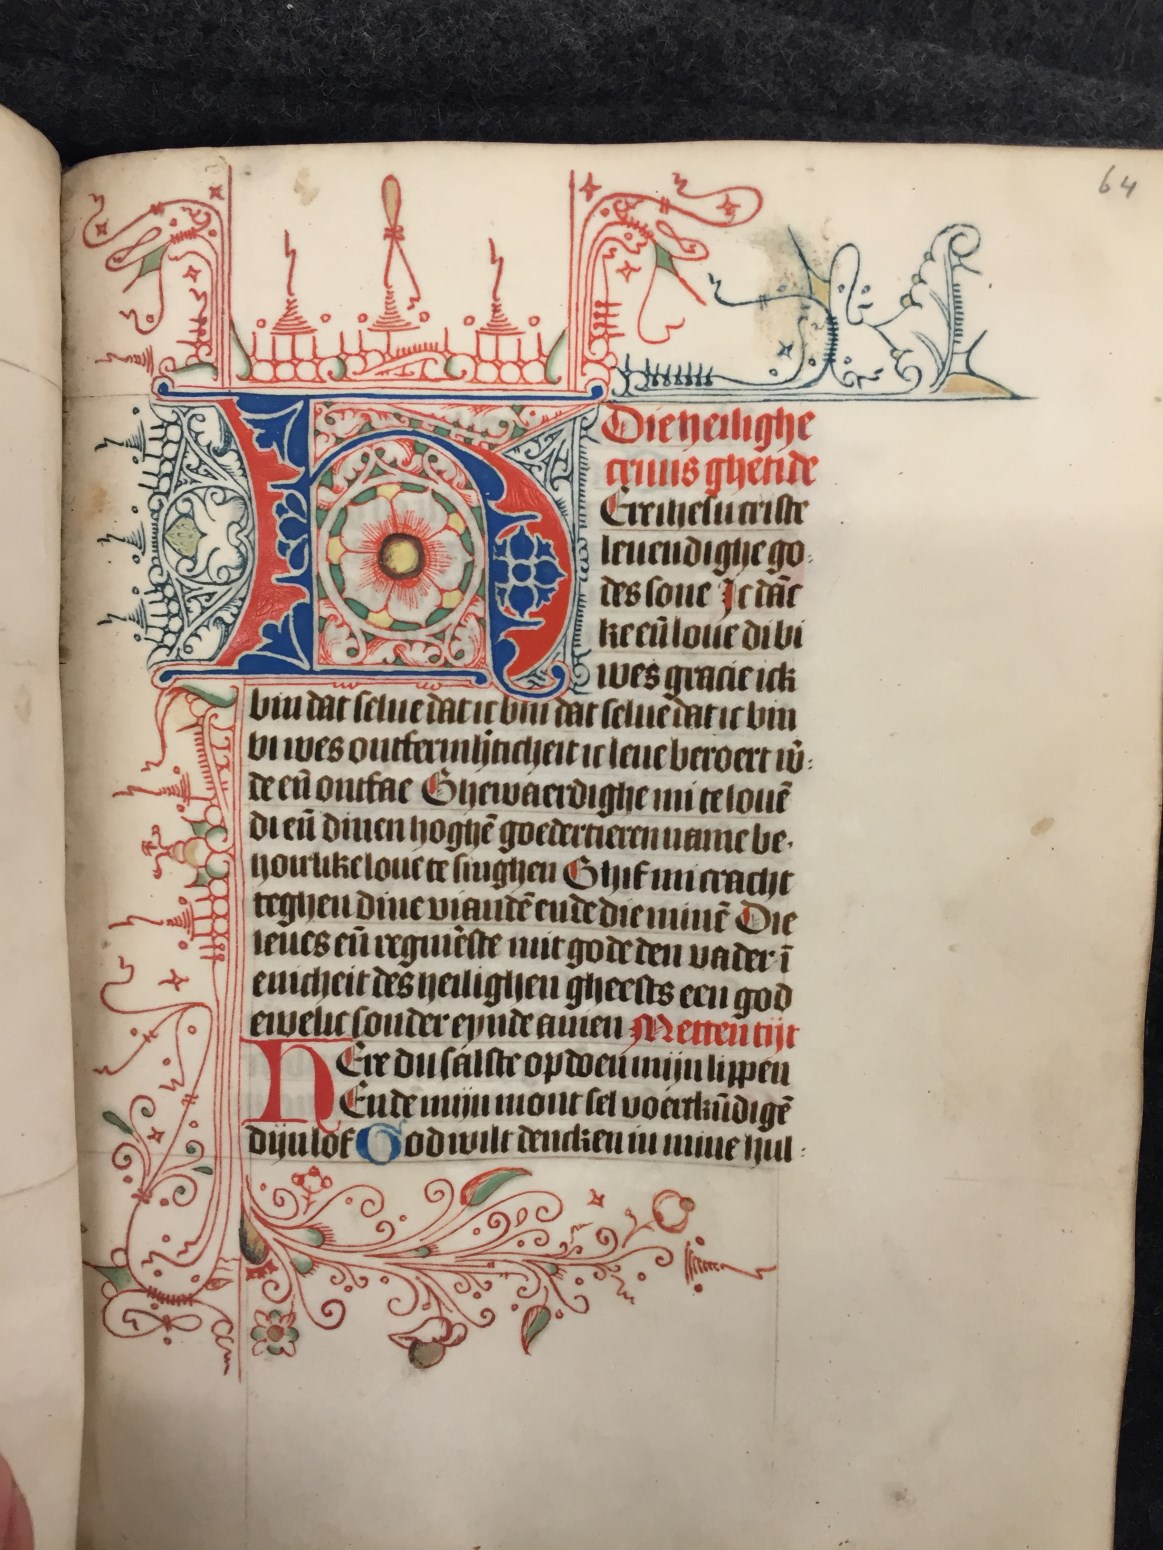 64
Die heilighe
cruus ghetide
HEre ihesu criste
leuendighe go
des sone Ic dāc
ke eñ loue di bi
wes gracie ick
bin dat selue dat ic bin dat selue dat ic bin
bi wes ontfermh̄ticheit ic leue beroert w̄
de eñ ontfae Ghewaerdighe mi te louē
di eñ dinen hoghē goedertieren name be
hourlike loue te singhen Ghif mi cracht
teghen dine viandē ende die minē Die
leues eñ regnierste mit gode den vader ī
enicheit des heilighen gheests een god
ewelic sonder eynde amen Metten tijt
HEre du salste op doen mijn lippen
Ende mijn mont sel voerkūdigē
dijn lof God wilt dencken in mine hul